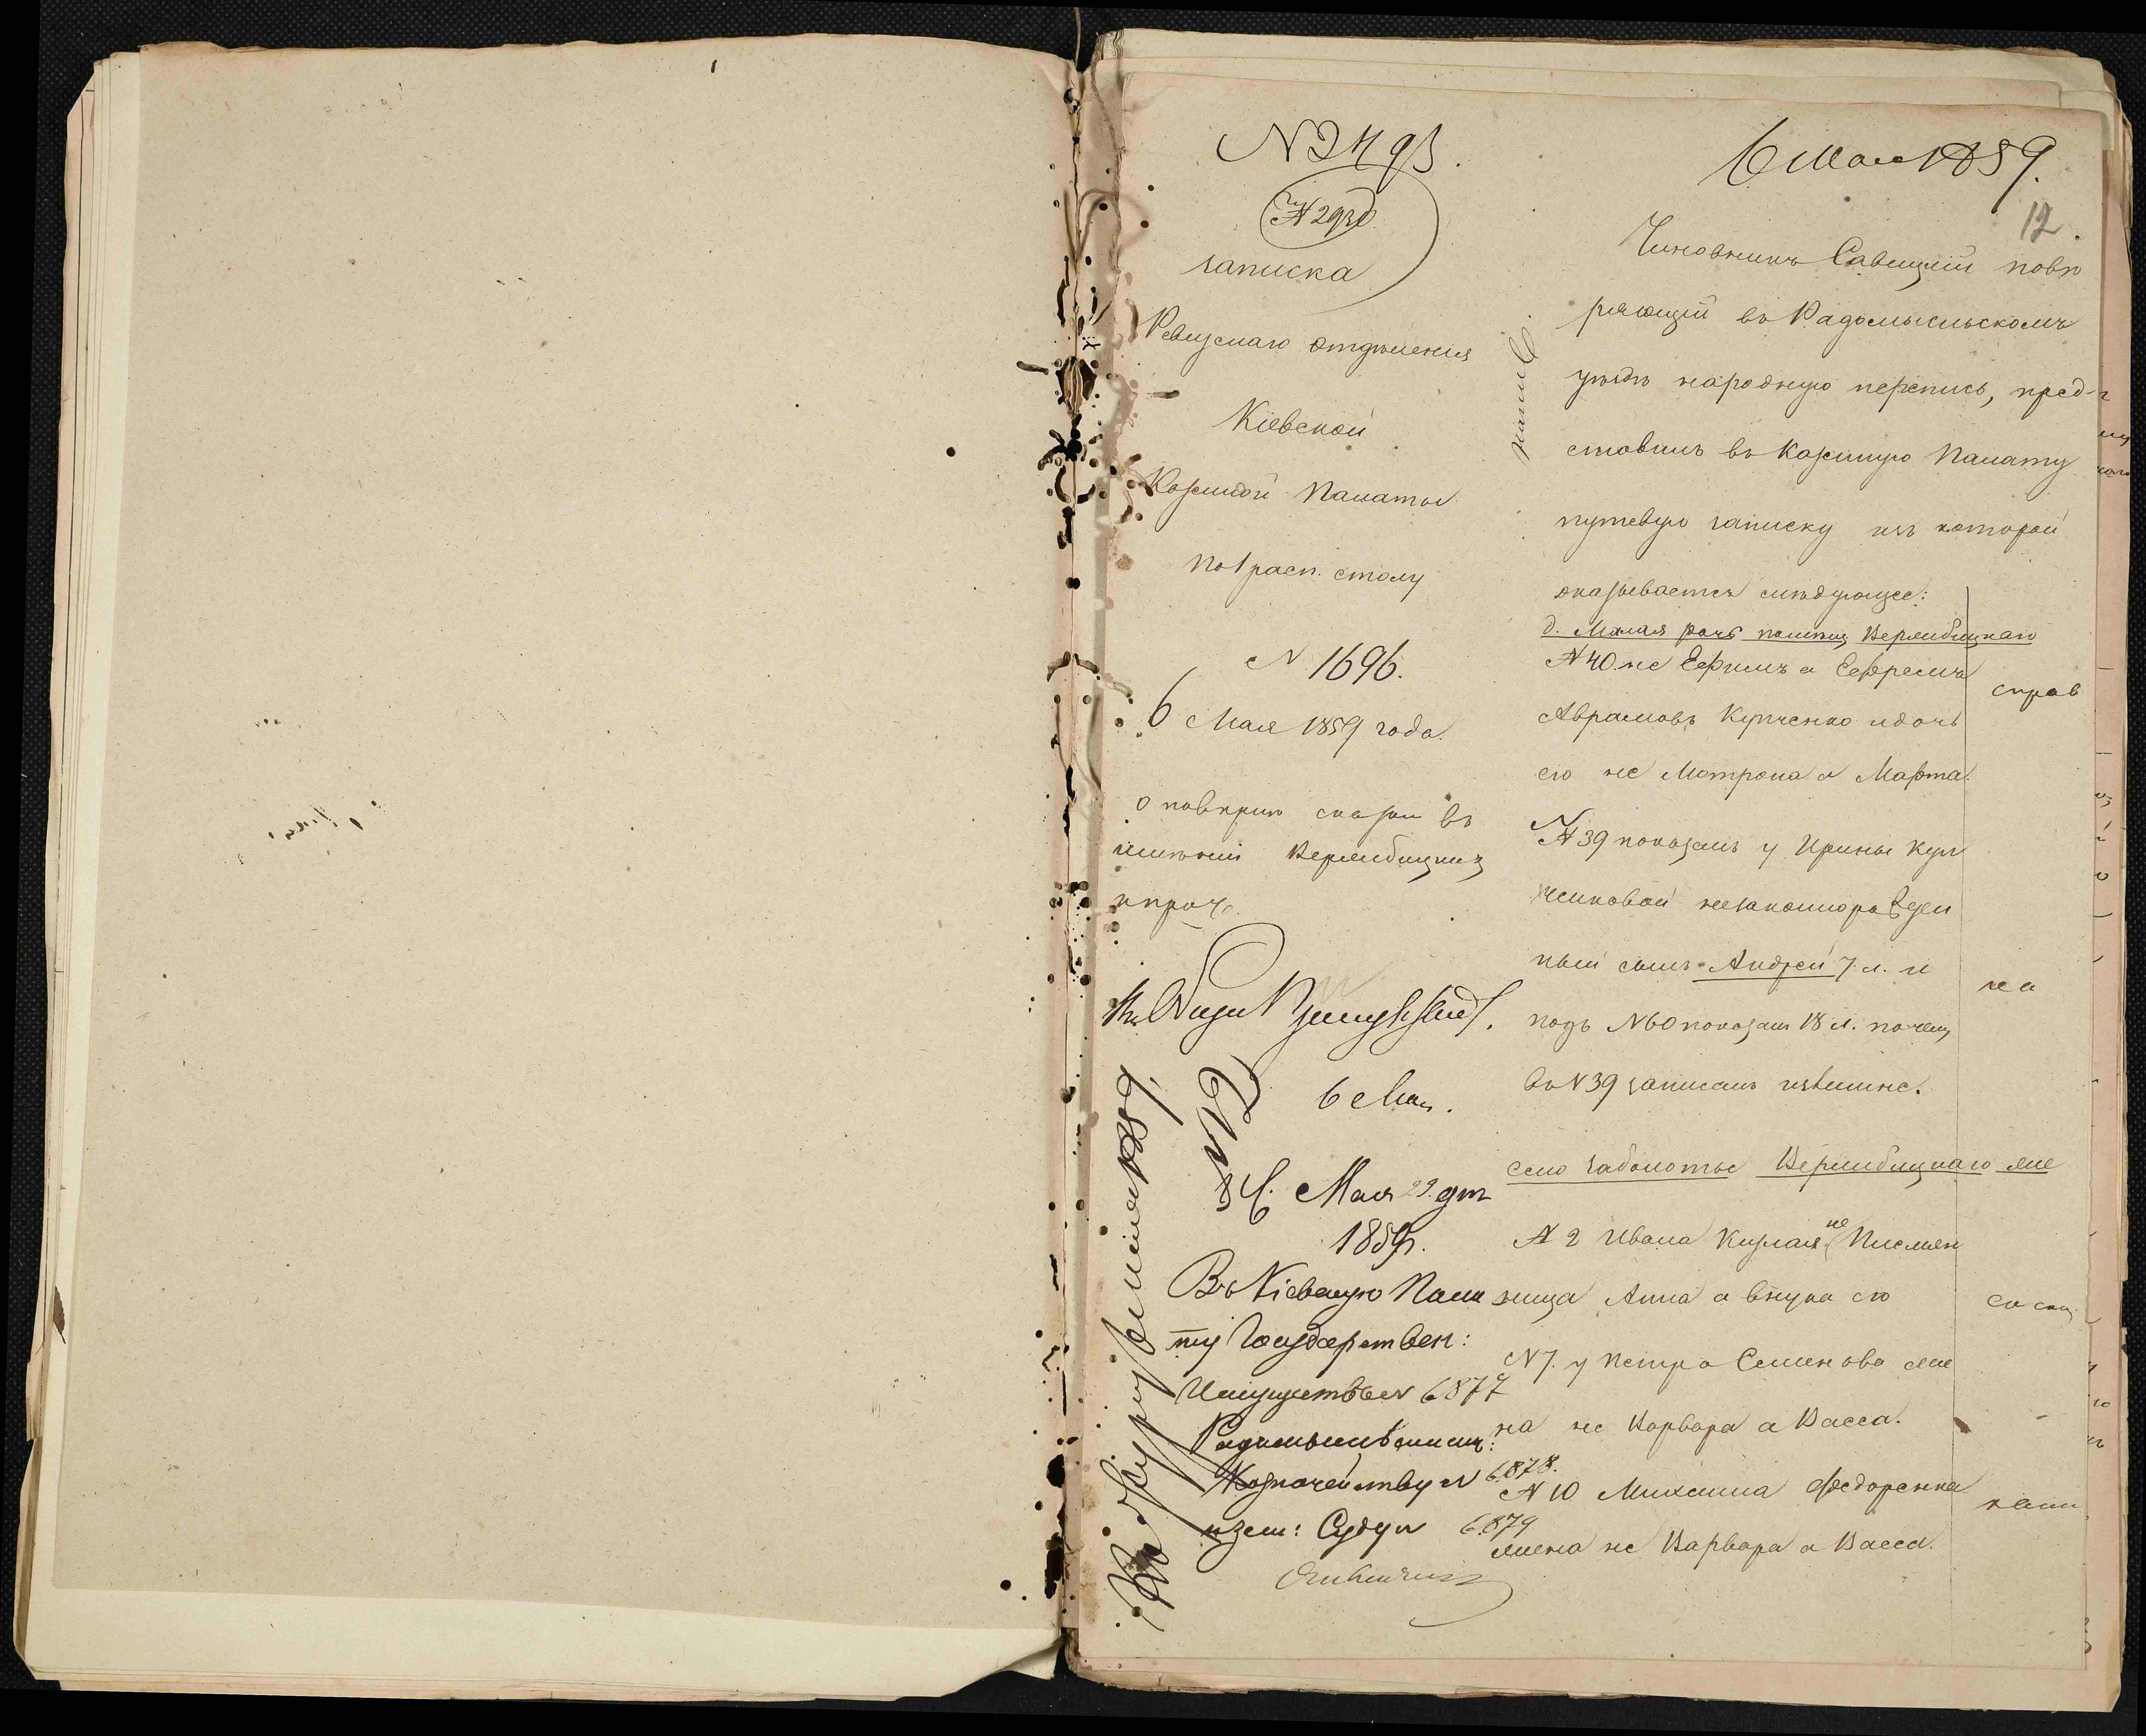 N 2493.
N 2930
записка
Ревизскаго отдѣленія
Кіевской
Казенной Палаты
по 1 расп. столу
N 1696.
6 Мая 1859 года.
о повѣркѣ сказки въ
имѣніи Вержбицкаго
и проч.
6 Мая.
Мая 22 дня
1859.
Въ Кіевскую Пала
ту Государствен:
Имуществъ N 6877
Казначейству N 6878.
и Зем: Суду N 6879
6 Мая 1859.
12.
Чиновникъ Савицкій повѣ
ряющій въ Радомысльскомъ
уѣздѣ народную перепись, пред-
ставилъ въ Казенную Палату
путевую записку изъ которой
оказывается слѣдующее:
N 40. не Ефимъ а Ефремъ
справ
Аврамовъ Купченко и дочь
его не Матрона а Марфа.
N 39 показанъ у Ирины Куп
ченковой незаконнорожден
ный сынъ Андрей 7 л. и
на
подъ N 60 показан 18 л. почему
въ N 39 записанъ излишне.
село Заболотье Вержбицкаго же
N 2 Ивана не Писмен
ница Анна а внука его
N 7. у Петра Семенова же
на не Варвара а Васса.
N 10 Михаила Федоренка
жена не Варвара а Васса.